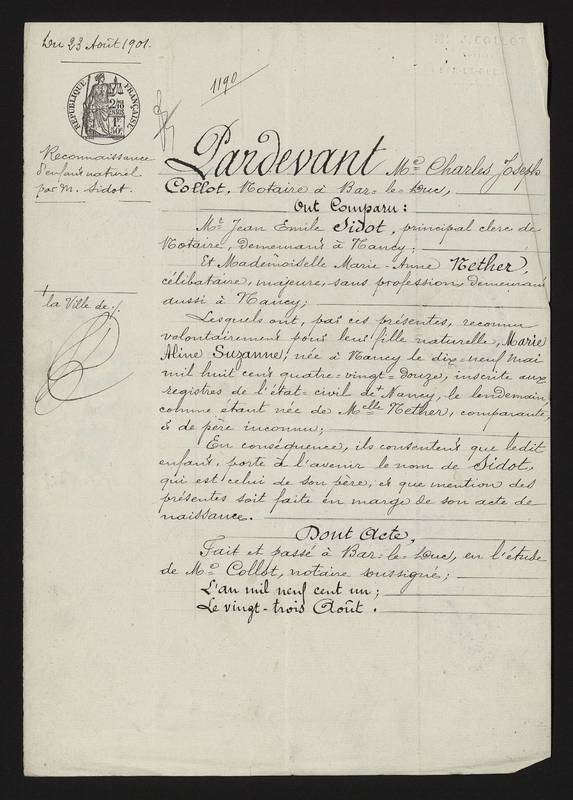 Du 23 Août 1901.
1190
RÉPUBLIQUE FRANÇAISE
Reconnaissance
d'enfant naturel
par M. Sidot.
Pardevant Me Charles Joseph
Collot, Notaire à Bar-le-Duc,
Ont Comparu :
Mr Jean Emile Sidot, principal clerc de
Notaire, demeurant à Nancy;
Et Mademoiselle Marie-Anne Nether,
célibataire, majeure, sans profession, demeurant
aussi à Nancy;
la Ville de /.
Lesquels ont, par ces présentes, reconnu
volontairement pour leur fille naturelle, Marie
Aline Suzanne, née à Nancy le dix-neuf mai
mil huit cent quatre-vingt-douze, inscrite aux
registres de l'état-civil de + Nancy, le lendemain,
comme étant née de Melle Nether, comparante,
& de père inconnu;
En conséquence, ils consentent que ledit
enfant, porte à l'avenir le nom de Sidot,
qui est celui de son père, et que mention des
présentes soit faite en marge de son acte de
naissance.
Dont Acte,
Fait et passé à Bar-le-Duc, en l'étude
de Me Collot, notaire soussigné;
L'an mil neuf cent un;
Le vingt-trois Août.